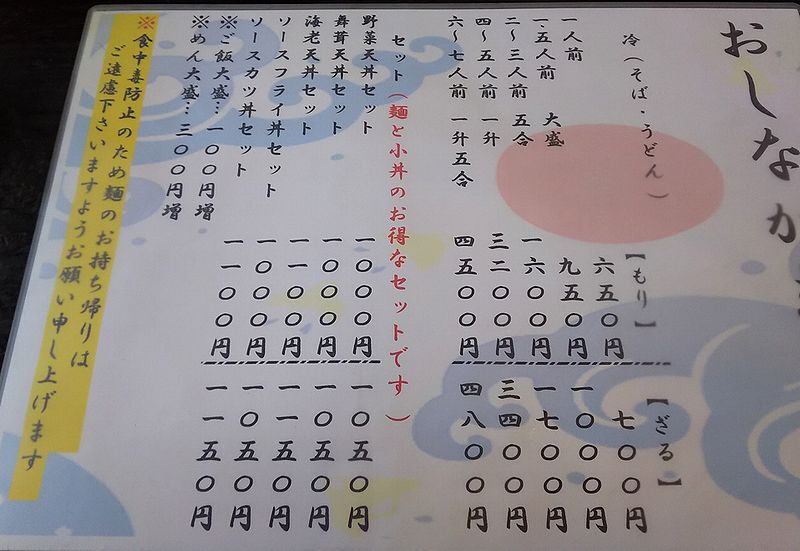 おしなが
冷(そば・うどん) 【もり】 【ざる】
一人前 六五〇円 七〇〇円
一.五人前 大盛 九五〇円 一〇〇〇円
二〜三人前 五合 一六〇〇円 一七〇〇円
四〜五人前 一升 三二〇〇円 三四〇〇円
六〜七人前 一升五合 四五〇〇円 四八〇〇円
セット(麺と小丼のお得なセットです)
野菜天丼セット 一〇〇〇円 一〇五〇円
舞茸天丼セット 一〇〇〇円 一〇五〇円
海老天丼セット 一一〇〇円 一一五〇円
ソースフライ丼セット 一〇〇〇円 一〇五〇円
ソースカツ丼セット 一一〇〇円 一一五〇円
※ご飯大盛…一〇〇円増
※めん大盛…三〇〇円増
※食中毒防止のため麺のお持ち帰りは
ご遠慮下さいますようお願い申し上げます